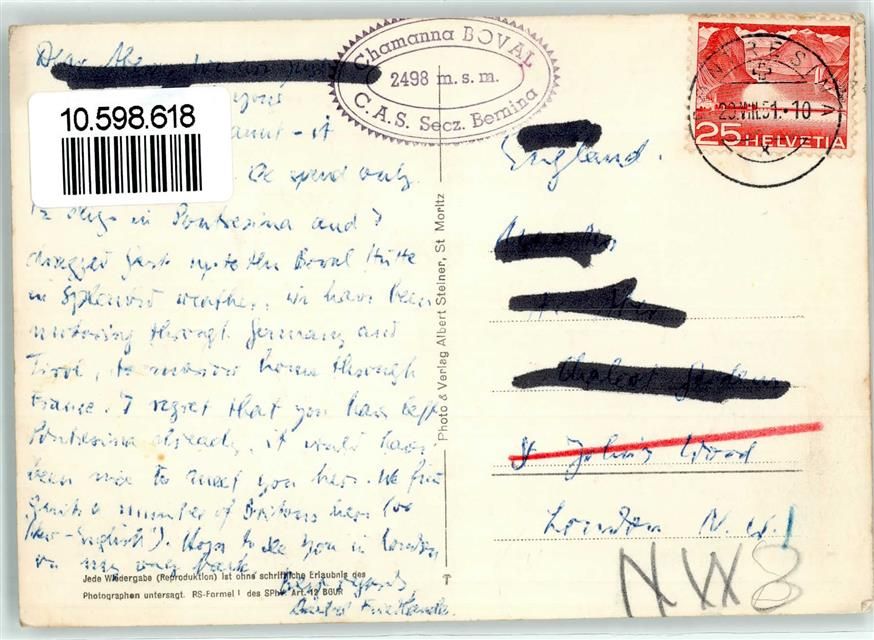 Dear
10.598.618
it
We spend only
1/2 days in Pontresina and I
dragged Gert up to the Boval Hütte
in splendid weather. We have been
motoring through Germany and
Tirol, tomorrow home through
France. I regret that you have left
Pontresina already, it would have
been nice to meet you here. We find
quite a number of Britons here (or
"New-English"). Hope to see you in London
on my way back.
Best regards
Friedländer.
Jede Wiedergabe (Reproduktion) ist ohne schriftliche Erlaubnis des
Photographen untersagt. RS-Formel I des SPhV Art. 12 BGUR
Photo & Verlag Albert Steiner, St Moritz
Chamanna BOVAL
2498 m.s.m.
C.A.S. Secz. Bernina
PONTRESINA
29.VIII.51.-10
25 HELVETIA
England.
St John's Wood
London N.W.
NW8